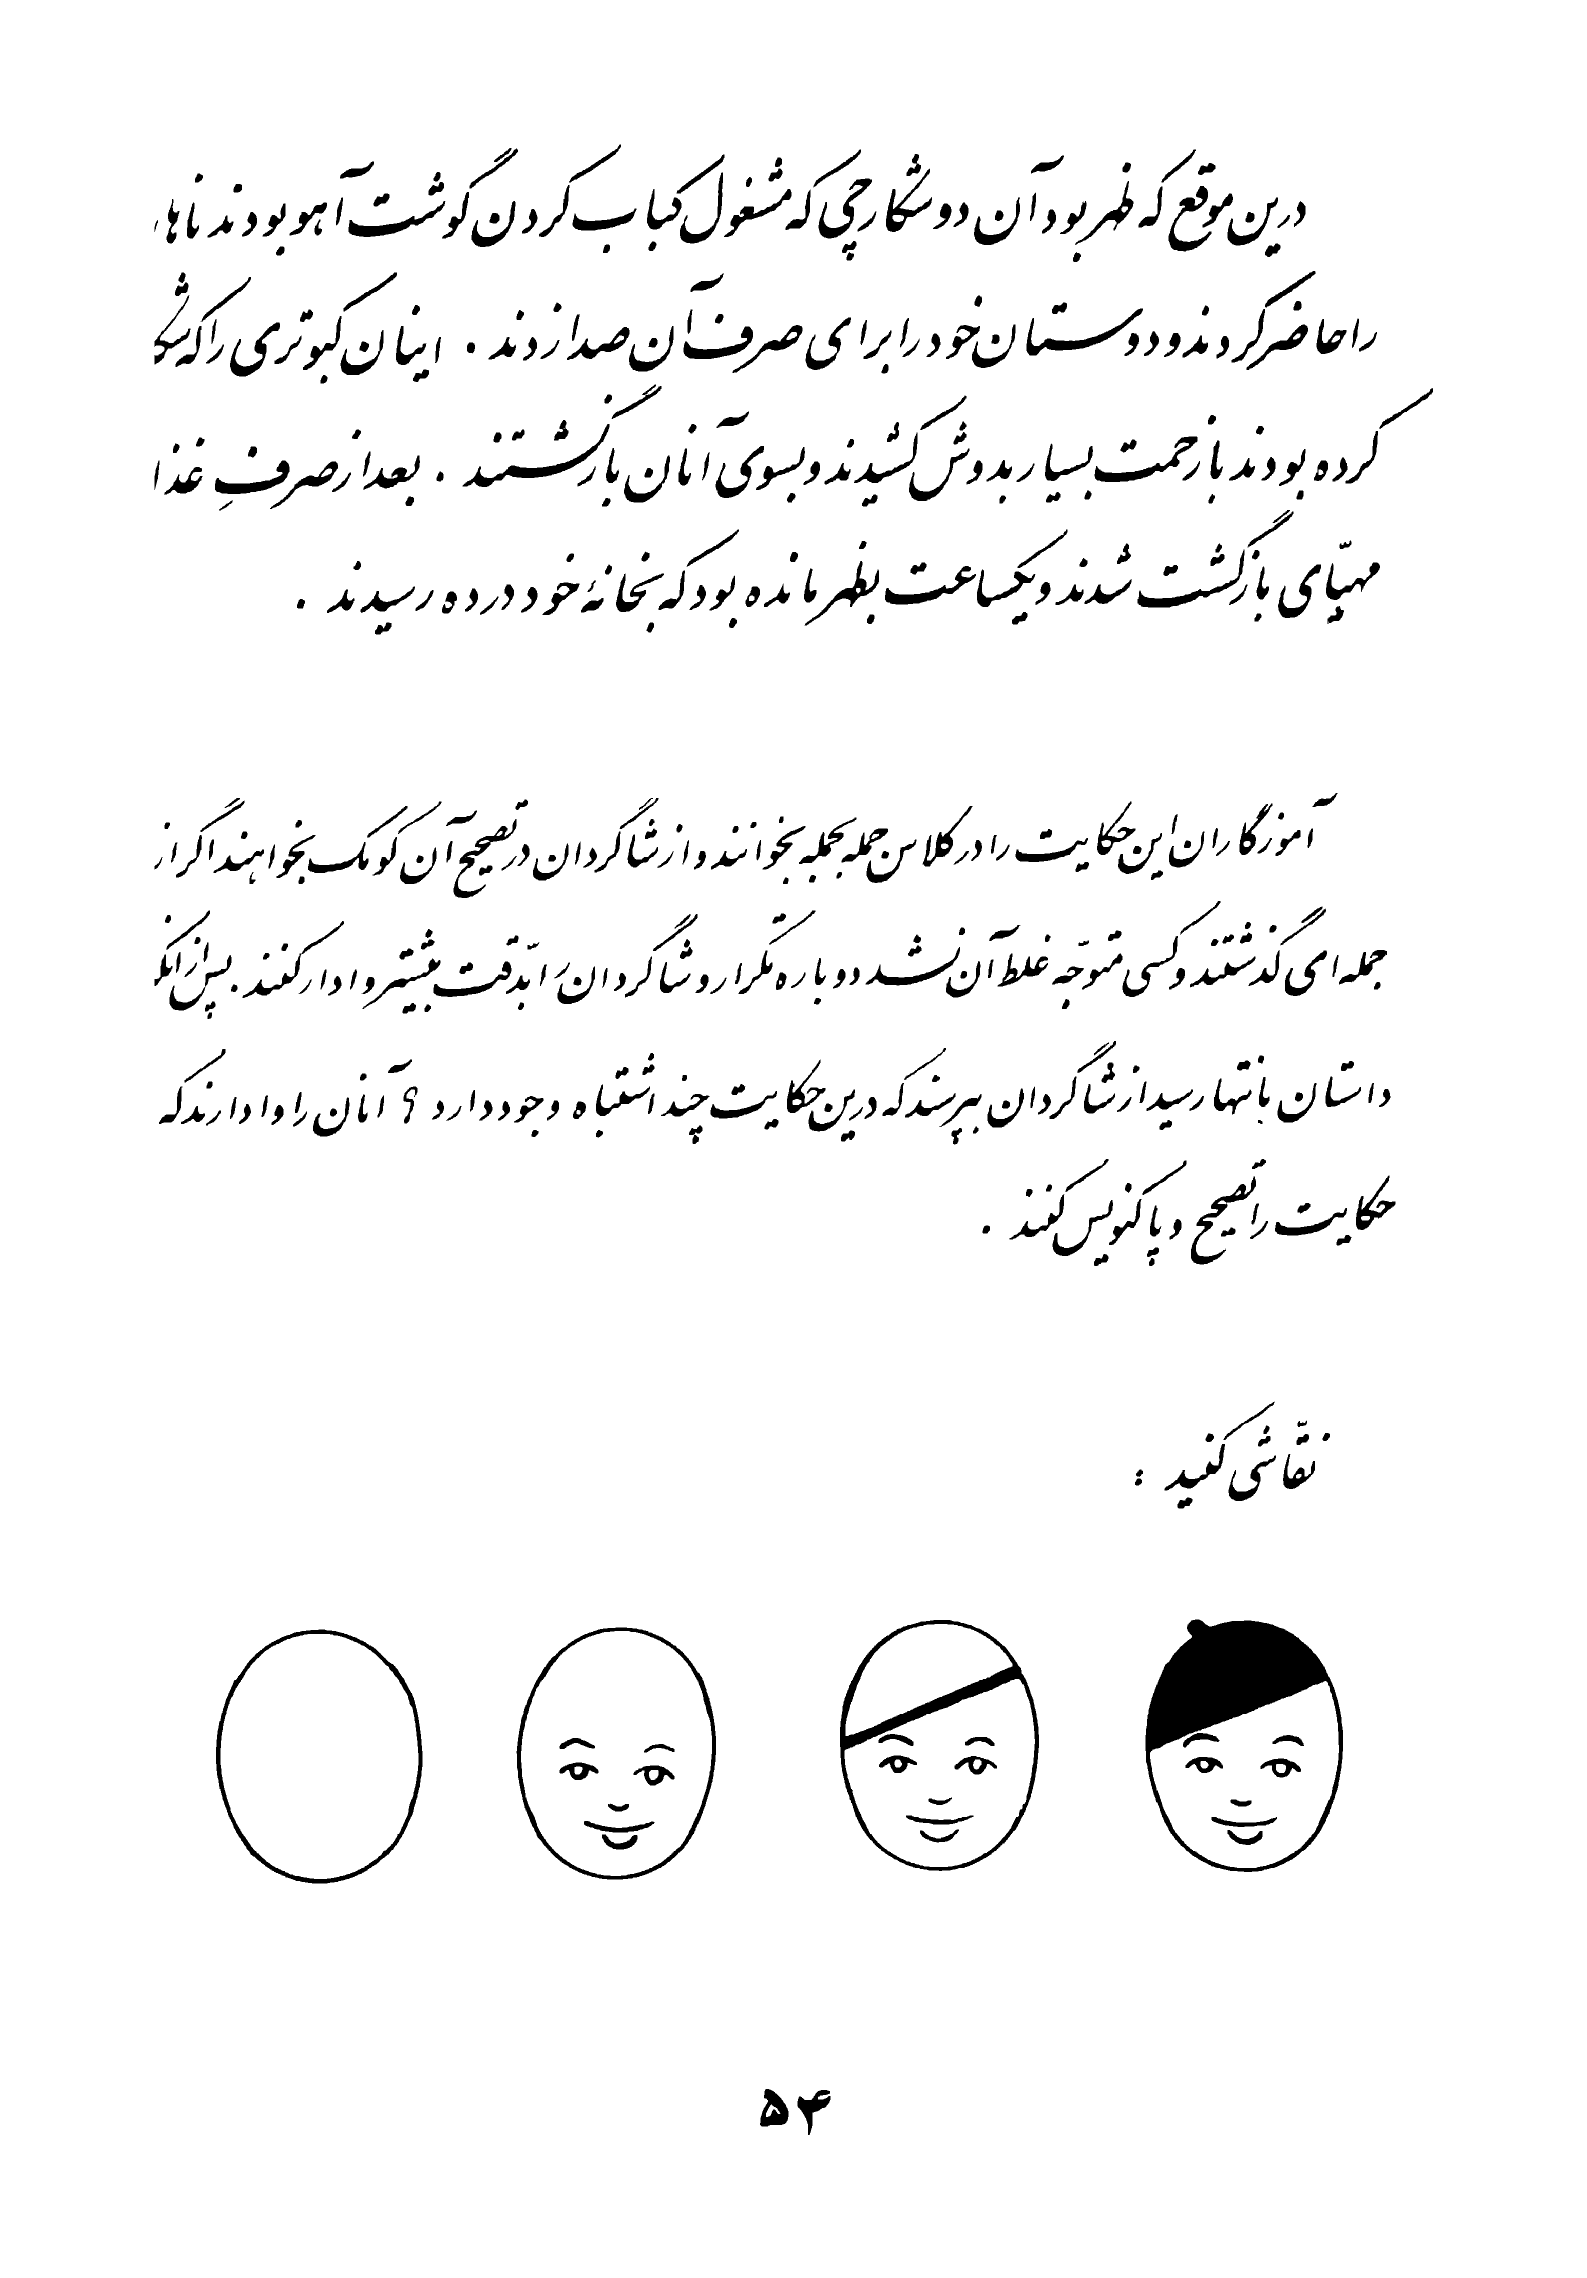 درین موقع که ظهر بود آن دو شکارچی که مشغول کباب کردن گوشت آهو بودند ناهار
را حاضر کردند و دوستان خود را برای صرف آن صدا زدند . اینان کبوتری را که شکا
کرده بودند با زحمت بسیار بدوش کشیدند و بسوی آنان بازگشتند . بعد از صرفِ غذا
مهیّای بازگشت شدند و یکساعت بظهر مانده بود که بخانهٔ خود در ده رسیدند .
آموزگاران این حکایت را در کلاس جمله بجمله بخوانند و از شاگردان در تصحیح آن کومک بخواهند اگر از
جمله ای گذشتند و کسی متوجّه غلط آن نشد دوباره تکرار و شاگردان را بدّقت بیشتر وادار کنند . پس از آنکه
داستان بانتها رسید از شاگردان بپرسند که درین حکایت چند اشتباه وجود دارد ؟ آنان را وادارند که
حکایت را تصحیح و پاکنویس کنند .
نقّاشی کنید :
۵۴